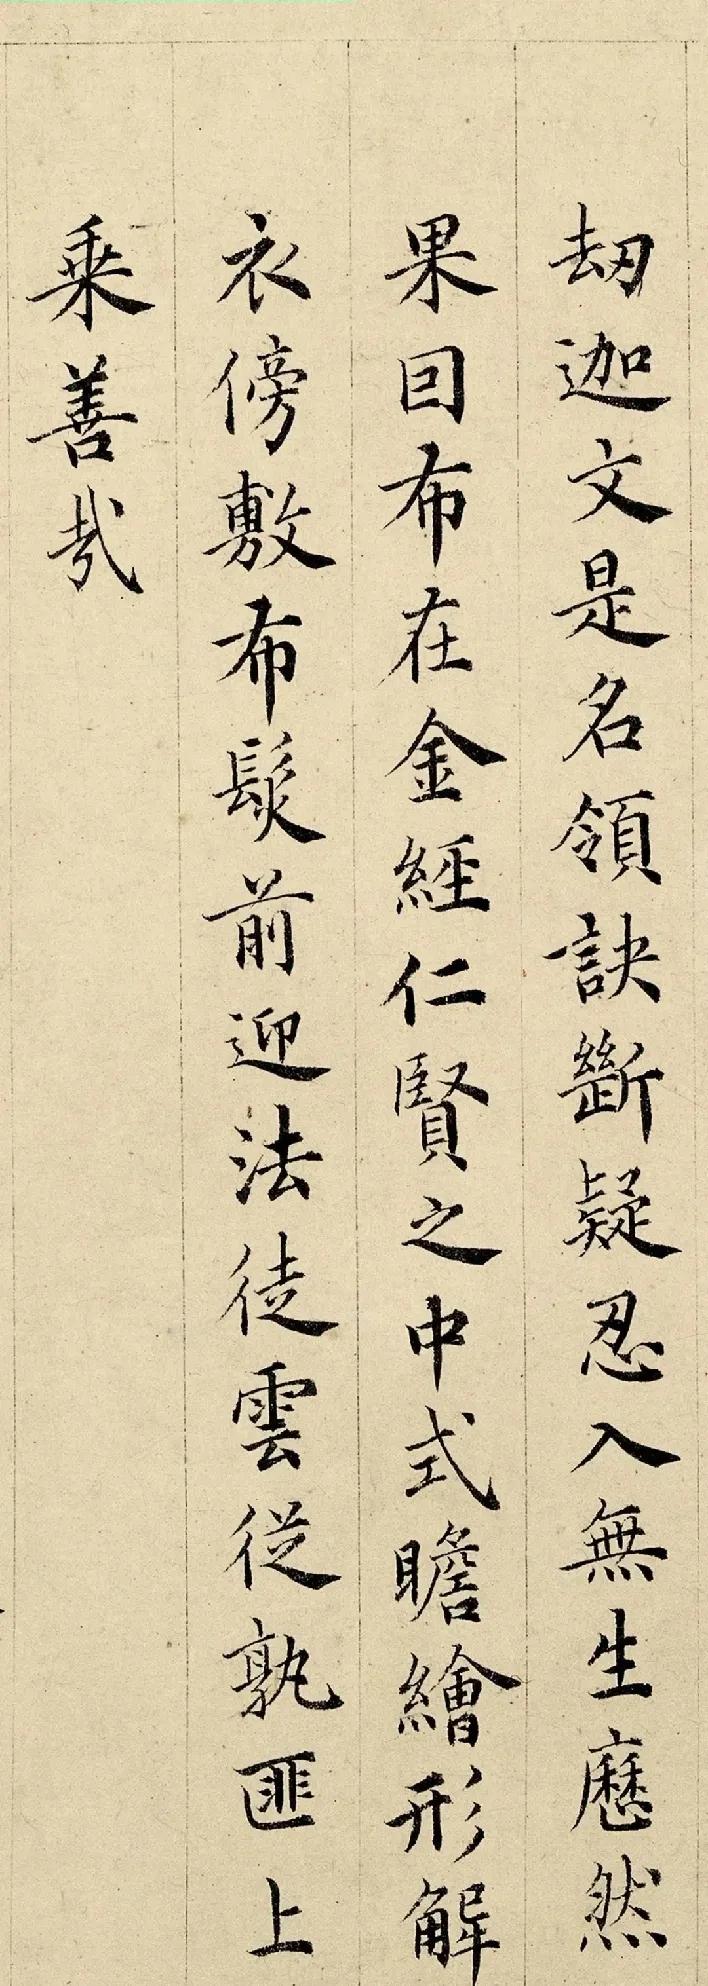 劫迦文是名領訣斷疑忍入無生應然
果囙布在金經仁賢之中式瞻繪形解
衣傍敷布髮前迎法徒雲從孰匪上
乗善㢤